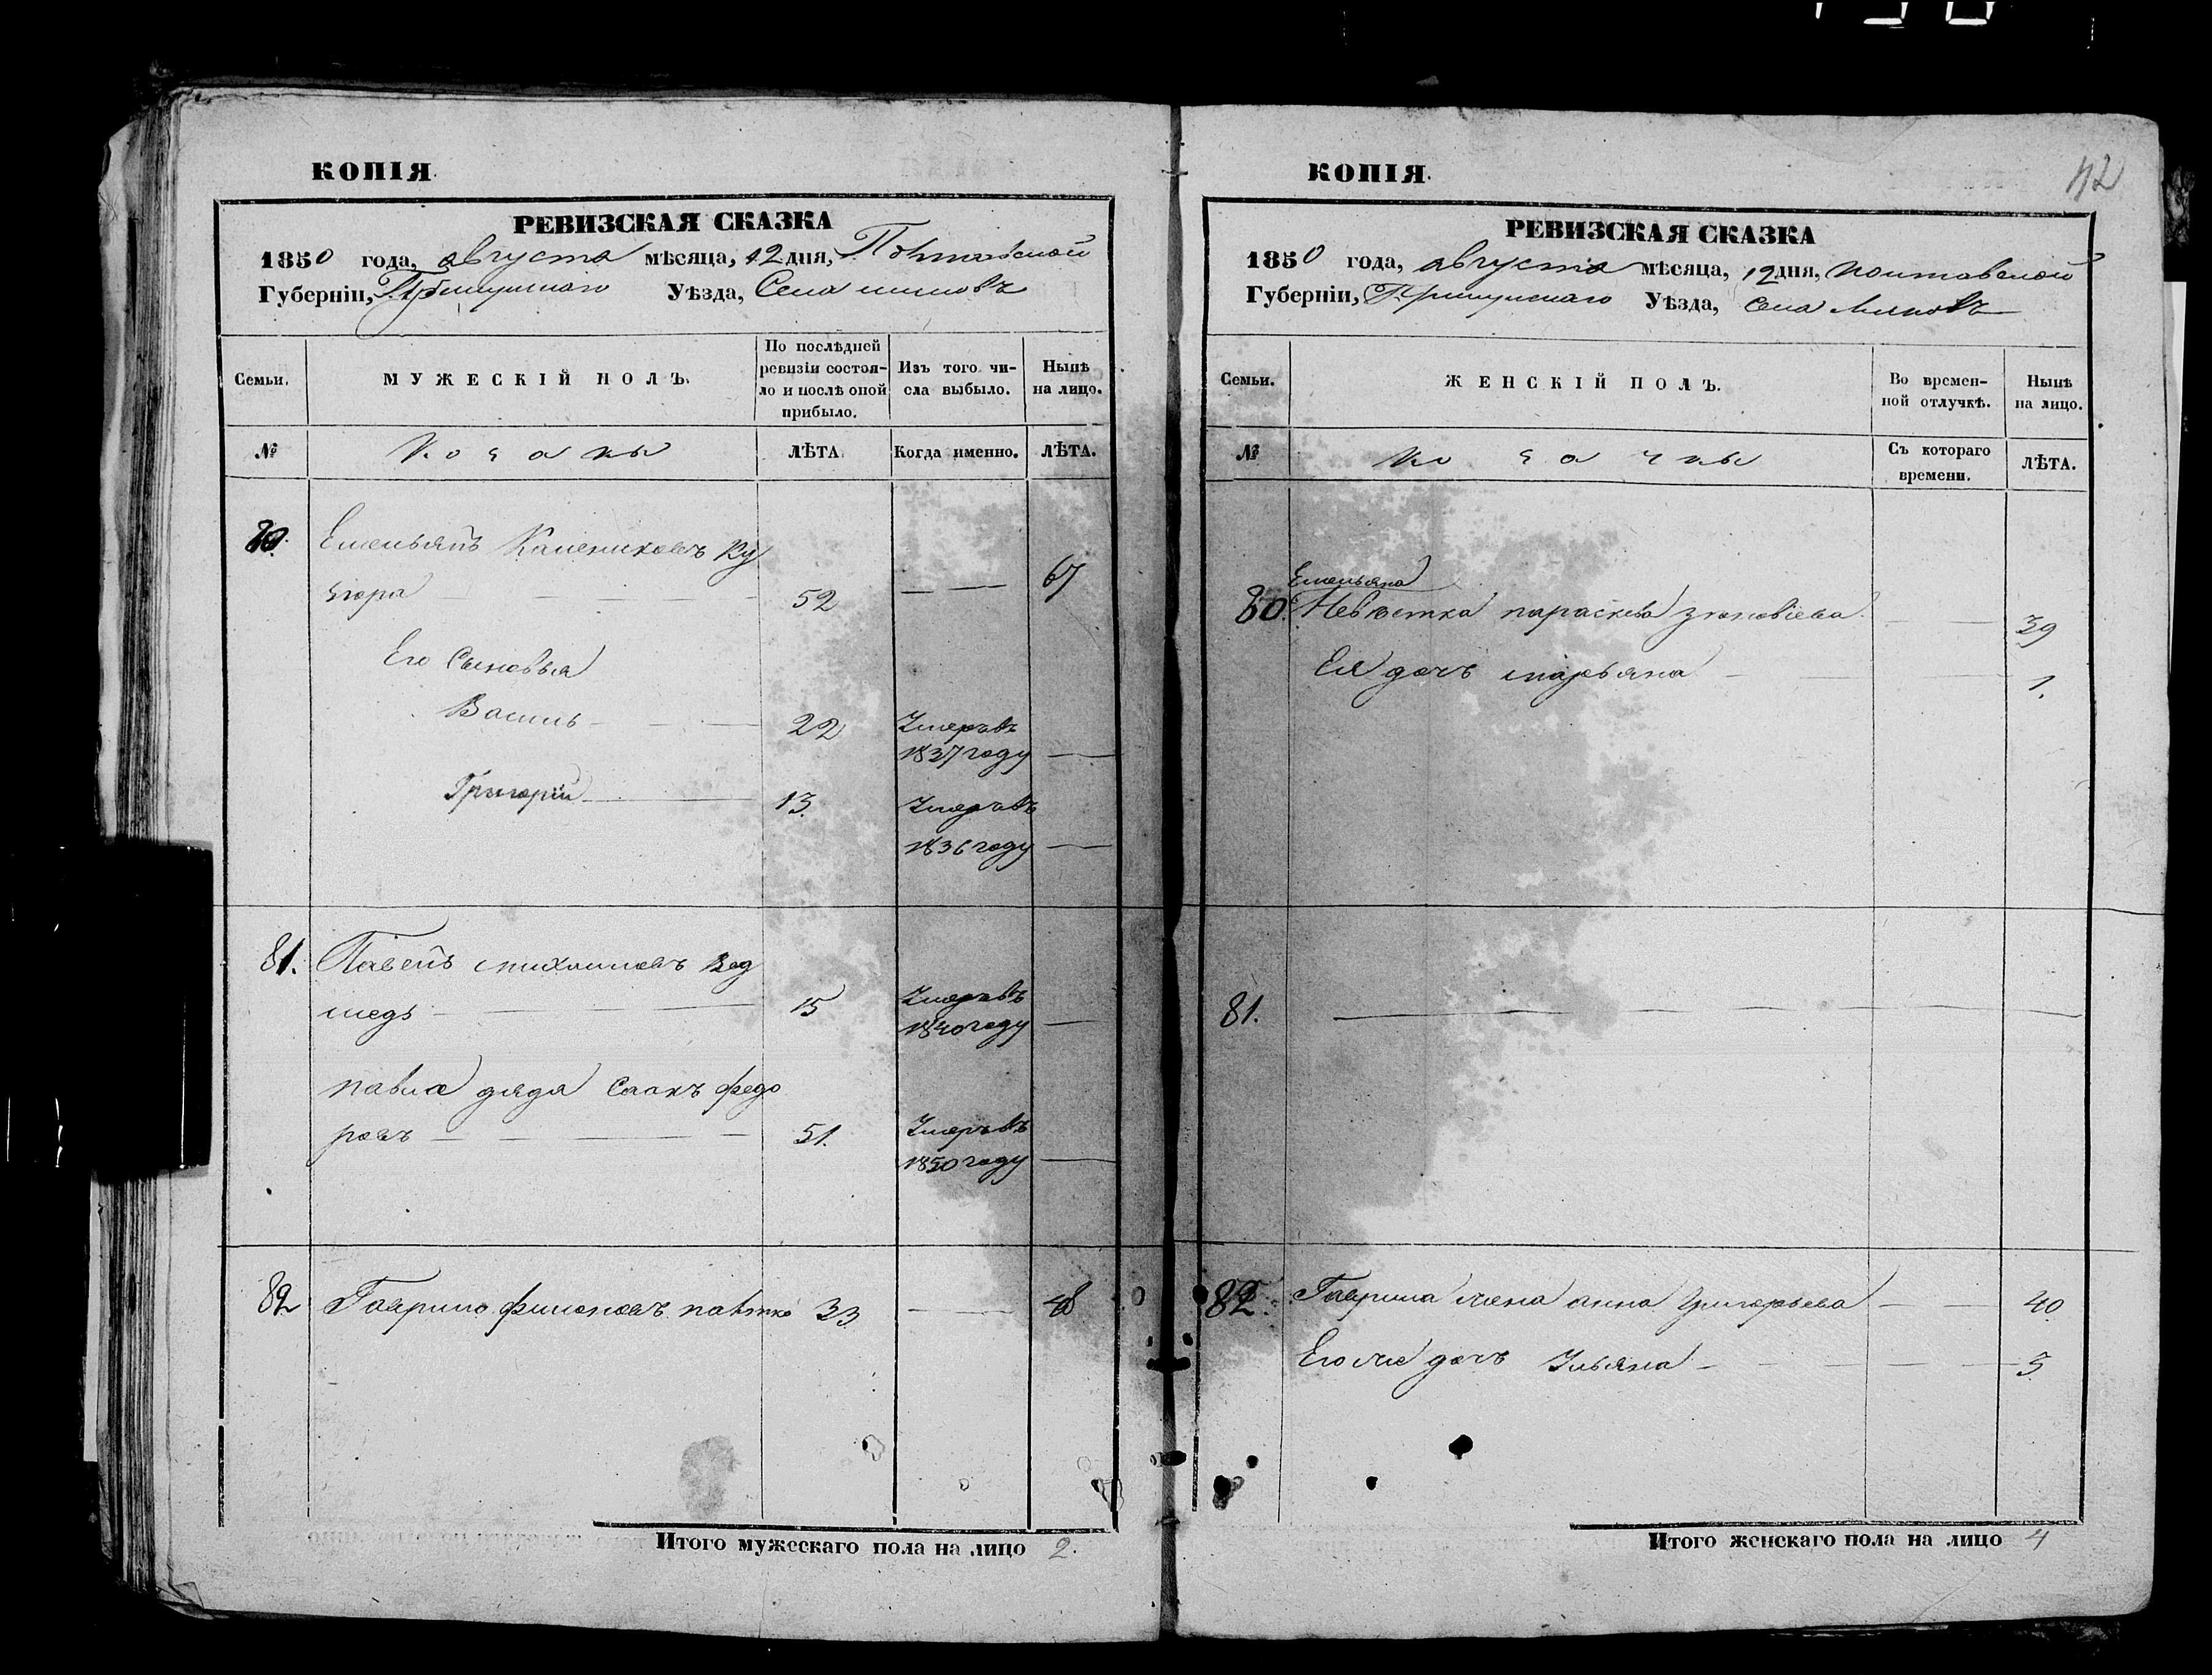 КОПІЯ.
РЕВИЗСКАЯ СКАЗКА
1850 года, августа мѣсяца, 12 дня, Полтавской
Губерніи, Прилуцкаго Уѣзда, Села
Семьи.
МУЖЕСКІЙ ПОЛЪ.
По послѣдней ревизіи состоя-
ло и послѣ оной прибыло.
Изъ того чи-
сла выбыло.
Нынѣ на лицо.
№
Козаки
ЛѢТА.
Когда именно.
ЛѢТА.
80.
Емельянъ Калениковъ Ку
зюра — 52 — 67
Его Сыновья
Василь — 22 Умеръ въ
1837 году —
Григорій — 13. Умеръ въ
1836 году —
81. Павелъ михайловъ Вед
медь — 15 Умеръ въ
1840 году —
павла дядя Саакъ федо
ровъ — 51. Умеръ въ
1850 году —
82 Гаврило филоновъ 33 — 48
Итого мужескаго пола на лицо 2.
42
КОПІЯ.
РЕВИЗСКАЯ СКАЗКА
1850 года, августа мѣсяца, 12 дня, полтавской
Губерніи, Прилуцкаго Уѣзда, села
Семьи.
ЖЕНСКІЙ ПОЛЪ.
Во времен-
ной отлучкѣ.
Нынѣ
на лицо.
№
козачки
Съ котораго
времени.
ЛѢТА.
Емельяна
80. Невѣстка параскева зѣновіева — 39
Ея дочъ марьяна — 1.
81. —
82. Гаврила жена анна Григорьева — 40
Его же дочъ Ульяна — 3.
Итого женскаго пола на лицо 4